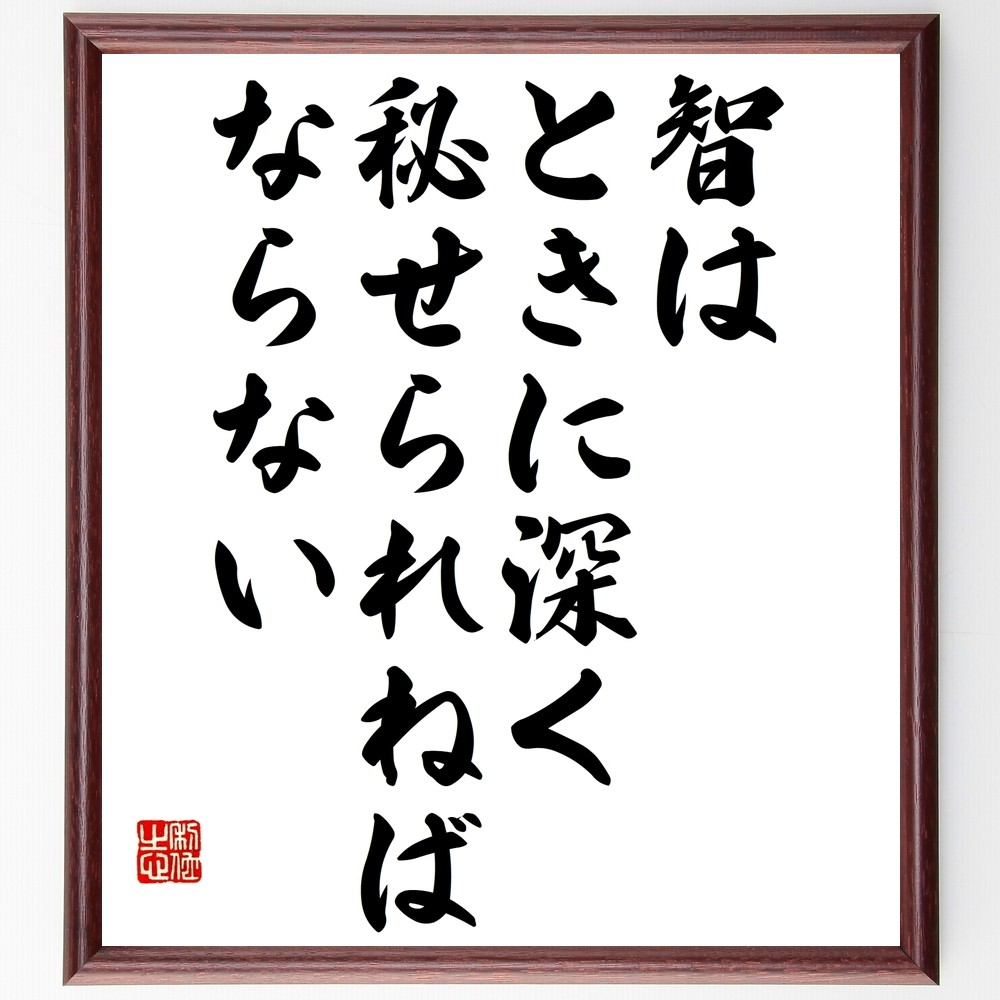 智は
ときに深く
秘せられねば
ならない